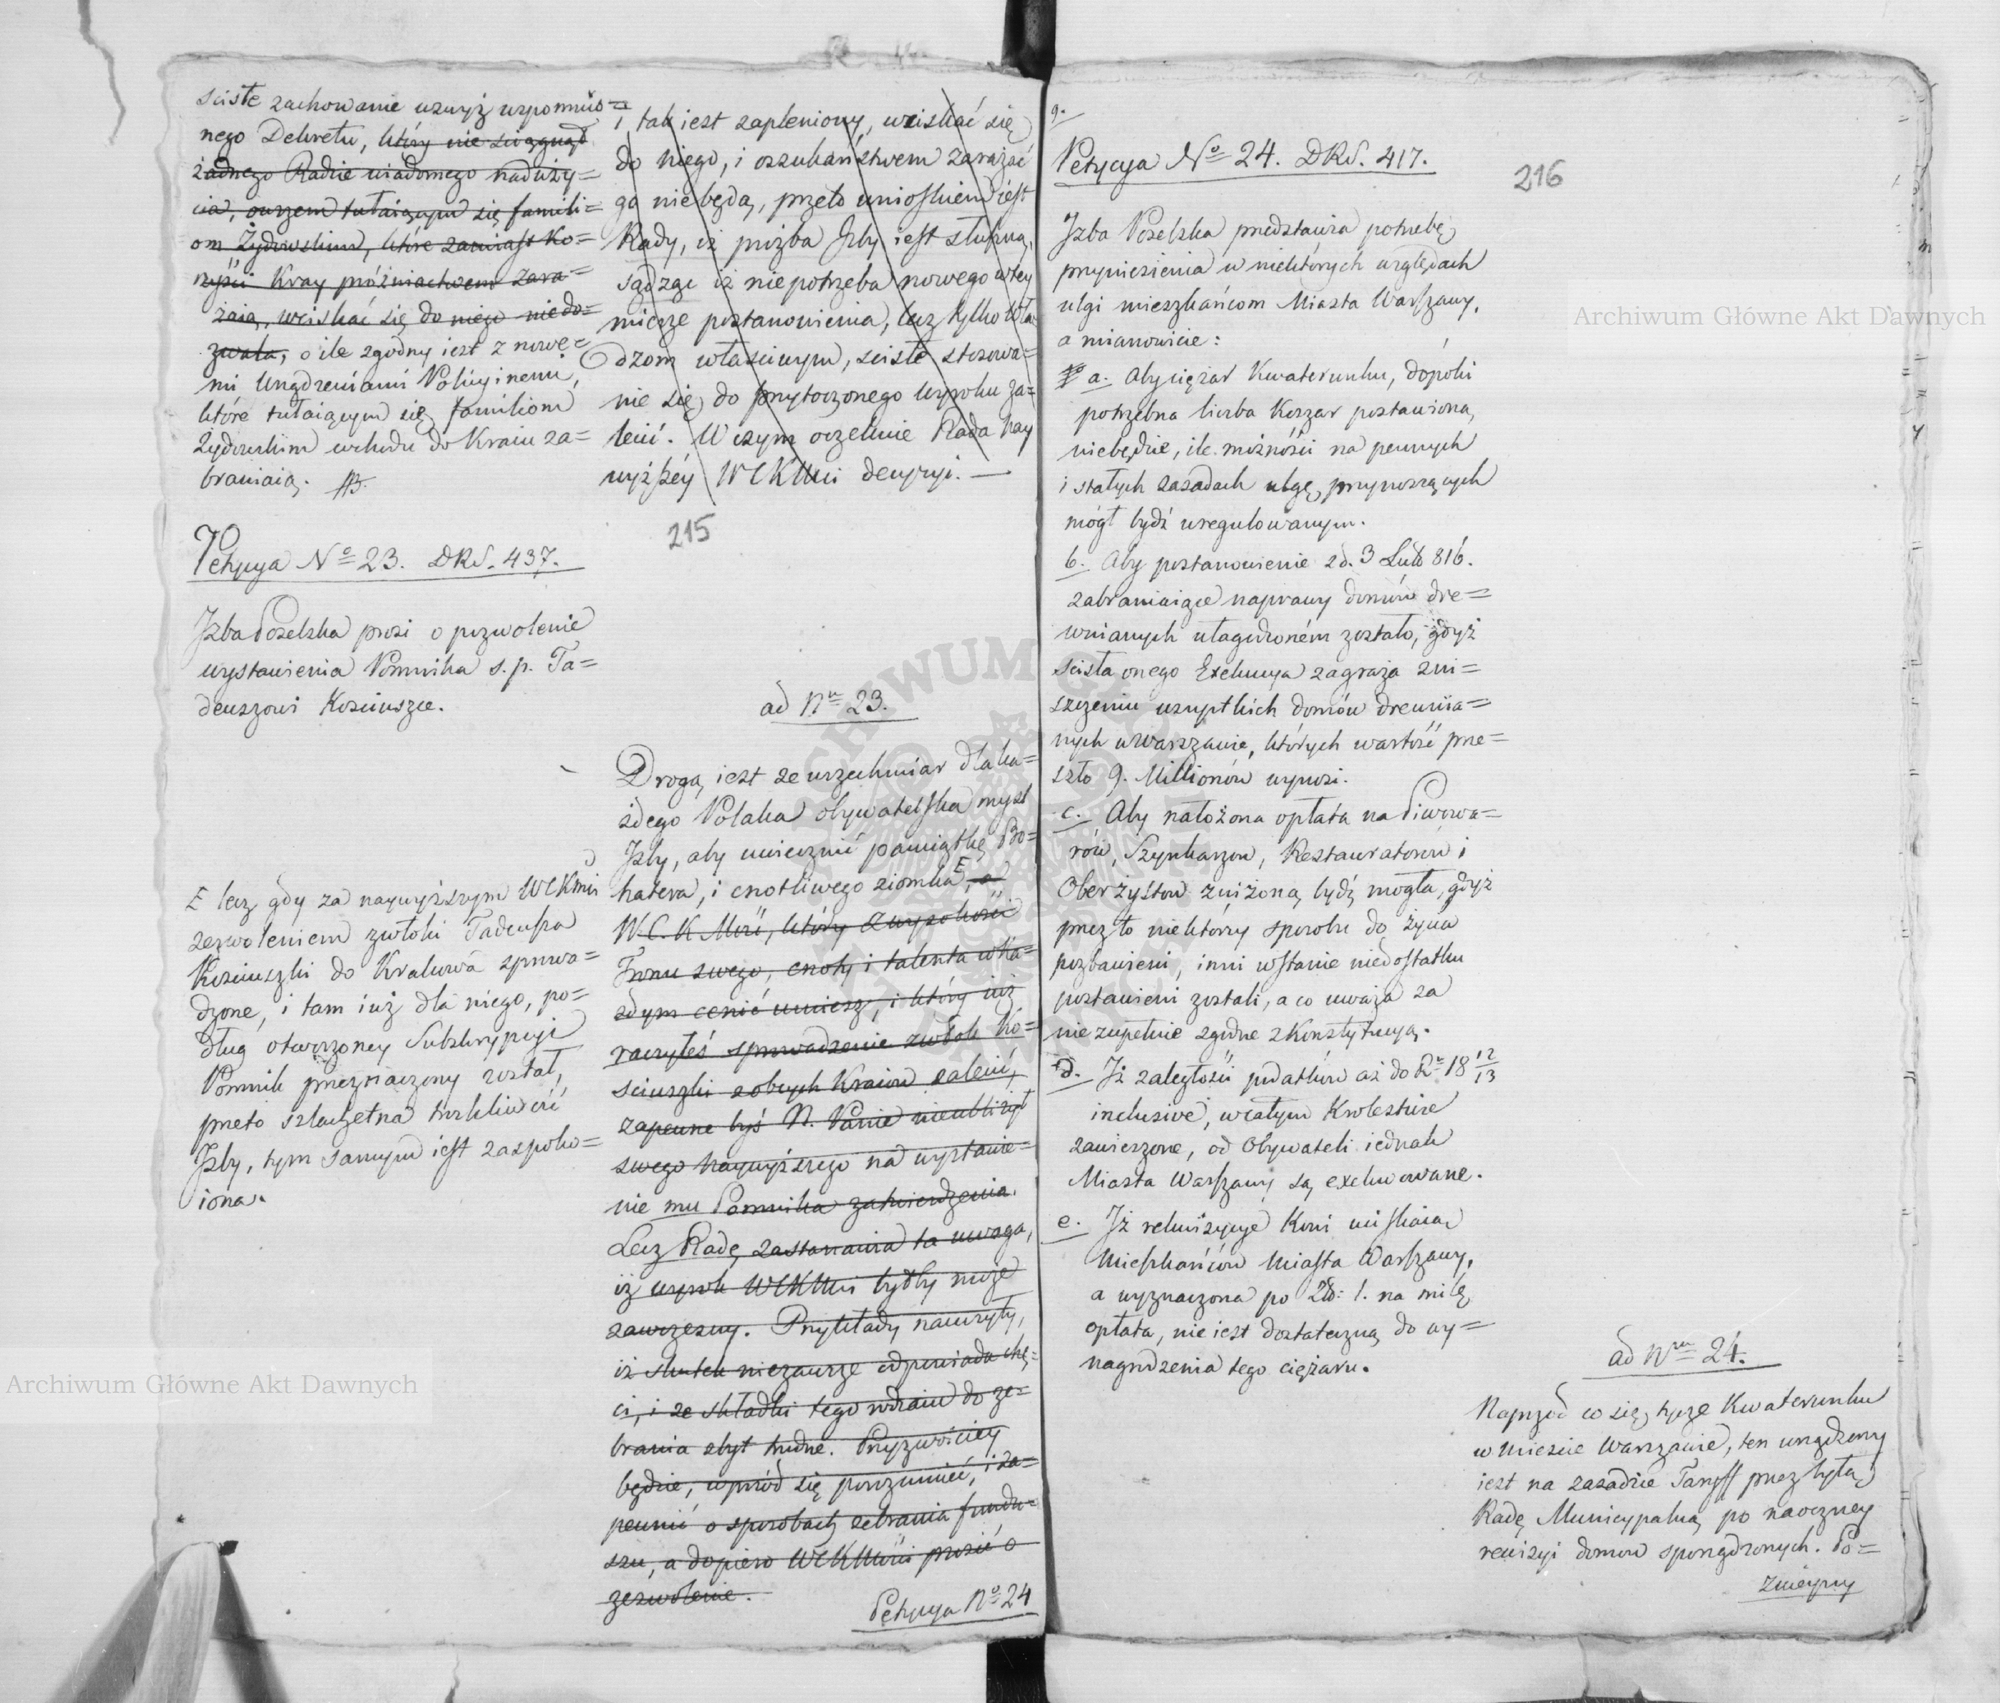 scisłe zachowanie wzwyż wspomnio=
nego Dekretu, który nie sciągnął
żadnego Radzie wiadomego naduży=
cia, owszem tułaiącym się famili=
om Żydowskim, które zamiast Ko=
rzyści Kray próżniactwem zara=
żaią, wciskać się do niego niedo=
zwala, o ile zgodny iest z nowe=
mi Urządzeniami Policyinemi,
które tułaiącym się familiom
Żydowskim wchodu do Kraiu za=
braniaią.
Petycya No 23. DRS. 437.
Izba Poselska prosi o pozwolenie
wystawienia Pomnika s. p. Ta=
deuszowi Kosciuszce.
E lecz gdy za naywyższym WCKMci
zezwoleniem zwłoki Tadeusza
Kosciuszki do Krakowa sprowa=
dzone, i tam iuż dla niego, po=
dług otworzoney Subskrypcyi
Pomnik przeznaczony został,
przeto szlachetna troskliwość
Izby, tym samym iest zaspoko=
iona.
i tak iest zapleniony, wciskać się
do niego, i oszukaństwem zarażać
go nie będą, przeto wnioskiem iest
Rady, iż proźba Izby iest słuszną,
sądząc iż niepotrzeba nowego w tey
mierze postanowienia, lecz tylko Wła
dzom właściwym, sciśle stosowa=
nie się do przytoczonego Wyroku za=
lecić. W czym oczekuie Rada nay
wyższéy WCKMci decyzyi. —
215
ad Nr 23.
Drogą iest ze wszechmiar dla ka=
żdego Polaka obywatelska myśl
Izby, aby uwiecznić pamiątkę Bo=
hatera, i cnotliwego ziomka E, a
W. C. K. Mci, który z wysokości
Tronu swego, cnoty i talenta w ka=
żdym cenić umiesz, i który iuż
raczyłeś sprowadzenie zwłok Ko=
sciuszki z obcych Kraiów zalecić,
zapewne byś N. Panie nieubliżył
swego naywyższego na wystawie=
nie mu Pomnika zatwierdzenia.
Lecz Radę zastanawia ta uwaga,
iż wyrok WCKMci byłby może
zawczesny. Przykłady nauczyły,
iż skutek niezawsze odpowiada chę=
ci, i że składki tego rodzaiu do ze=
brania zbyt trudne. Przyzwoiciey
będzie, wprzód się porozumieć, i za=
pewnić o sposobach zebrania fundu=
szu, a dopiero WCKMości prosić o
zezwolenie.
Petycya No 24
9.
Petycya No 24. DRS. 417.
216
Izba Poselska przedstawia potrzebę
przyniesienia w niektórych względach
ulgi mieszkańcom Miasta Warszawy,
a mianowicie:
a. Aby ciężar Kwaterunku, dopóki
potrzebna liczba Koszar postawioną
niebędzie, ile możności na pewnych
i stałych zasadach ulgę przynoszących
mógł bydź uregulowanym.
b. Aby postanowienie z d. 3 Lut 816.
zabraniaiące naprawy domów dre=
wnianych ułagodzoném zostało, gdyż
scisła onego Exekucya zagraża zni=
szczeniu wszystkich domów drewnia=
nych w Warszawie, których wartość prze=
szło 9. Millionów wynosi.
c. Aby nałożona opłata na Piwowa=
rów, Szynkarzow, Restauratorów i
Oberżystow zniżoną bydź mogła, gdyż
przez to niektórzy sposobu do życia
pozbawieni, inni w stanie niedostatku
postawieni zostali, a co uważa za
nie zupełnie zgodne z Konstytucyą.
d. Iż zaległości podatków aż do Ru 18 12/13
inclusive, w całym Krolestwie
zawieszone, od Obywateli iednak
Miasta Warszawy są exekwowane.
e. Iż rekwizycye Koni uciskaią
Mieszkańców Miasta Warszawy,
a wyznaczona po Zło: 1. na milę
opłata, nie iest dostateczną do wy=
nagrodzenia tego ciężaru.
ad Nrum 24.
Naprzód co się tycze Kwaterunku
w Mieście Warszawie, ten urządzony
iest na zasadzie Taryff przez byłą
Radę Municypalną po naoczney
rewizyi domow sporządzonych. Po=
Archiwum Główne Akt Dawnych
Archiwum Główne Akt Dawnych